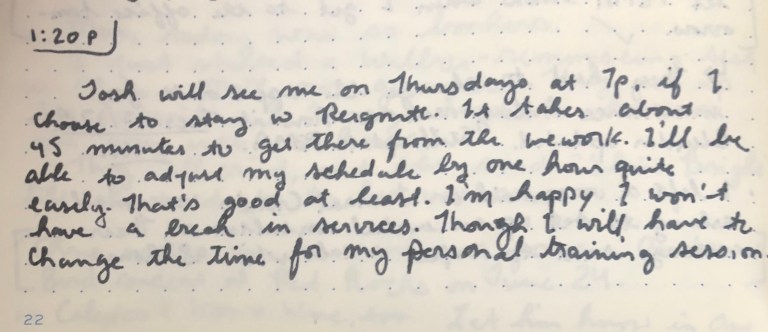 1:20p
Josh will see me on Thursdays at 7p, if I
choose to stay w
It takes about
45 minutes to get there from the wework. I'll be
able to adjust my schedule by one hour quite
easily. That's good at least. I'm happy I won't
have a break in services. Though I will have to
change the time for my personal training session.
22